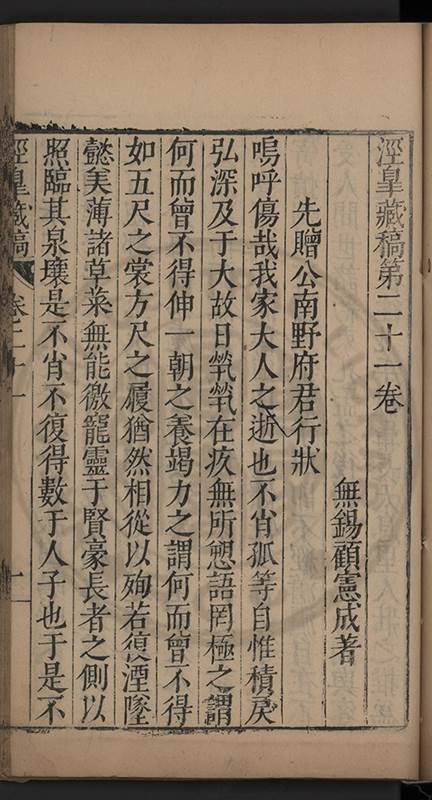 涇臯藏稿第二十一卷
無錫顧憲成著
先贈公南野府君行狀
嗚呼傷哉我家大人之逝也不肖孤等自惟積戾
弘深及于大故日煢煢在疚無所愬語罔極之謂
何而曾不得伸一朝之養竭力之謂何而曾不得
如五尺之裳方尺之履猶然相從以殉若復湮墜
懿美薄諸草萊無能徼寵靈于賢豪長者之側以
照臨其泉壤是不肖不復得數于人子也于是不
涇臯藏稿 卷二十一 一